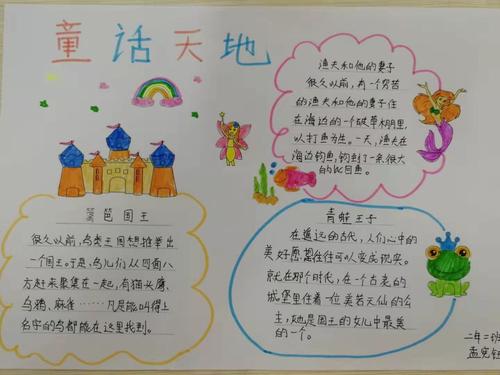 童话天地
渔夫和他的妻子
很久以前，有一个穷苦
的渔夫和他的妻子住
在海边的一个破草棚里，
以打鱼为生。一天，渔夫在
海边钓鱼，钓到了一条很大
的比目鱼。
篱笆国王
很久以前，鸟类王国想推举出
一个国王。于是，鸟儿们从四面八
方赶来聚集在一起，有猫头鹰、
乌鸦、麻雀……凡是能叫得上
名字的鸟都能在这里找到。
青蛙王子
在遥远的古代，人们心中的
美好愿望往往可以变成现实。
就在那个时代，在一个古老的
城堡里住着一位美若天仙的公
主，她是国王的女儿中最美
的一个。
二年二班
孟宪